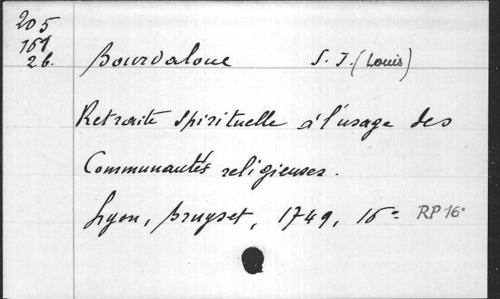 205
161
26.
Bourdaloue S. J. (Louis)
Retraite spirituelle à l'usage des
Communautés religieuses.
Lyon, Bruyset, 1749, 16= RP 16°